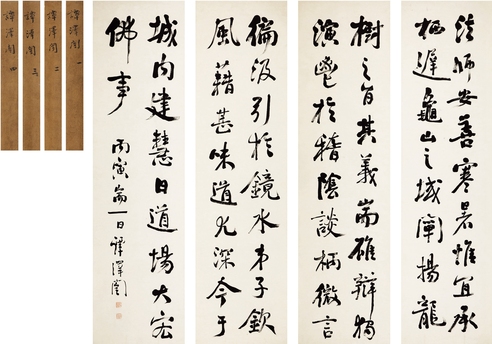 法師安善寒暑惟宜承
栖遲龜山之域闡揚龍
樹之旨其義耑雄辯獨
演暢於稽陰談柄微言
偏汲引於鏡水弟子欽
風藉甚味道尤深今于
城内建慧日道場大宏
佛事
丙寅耑一日譚澤闓
譚澤闓 一
譚澤闓 二
譚澤闓 三
譚澤闓 四